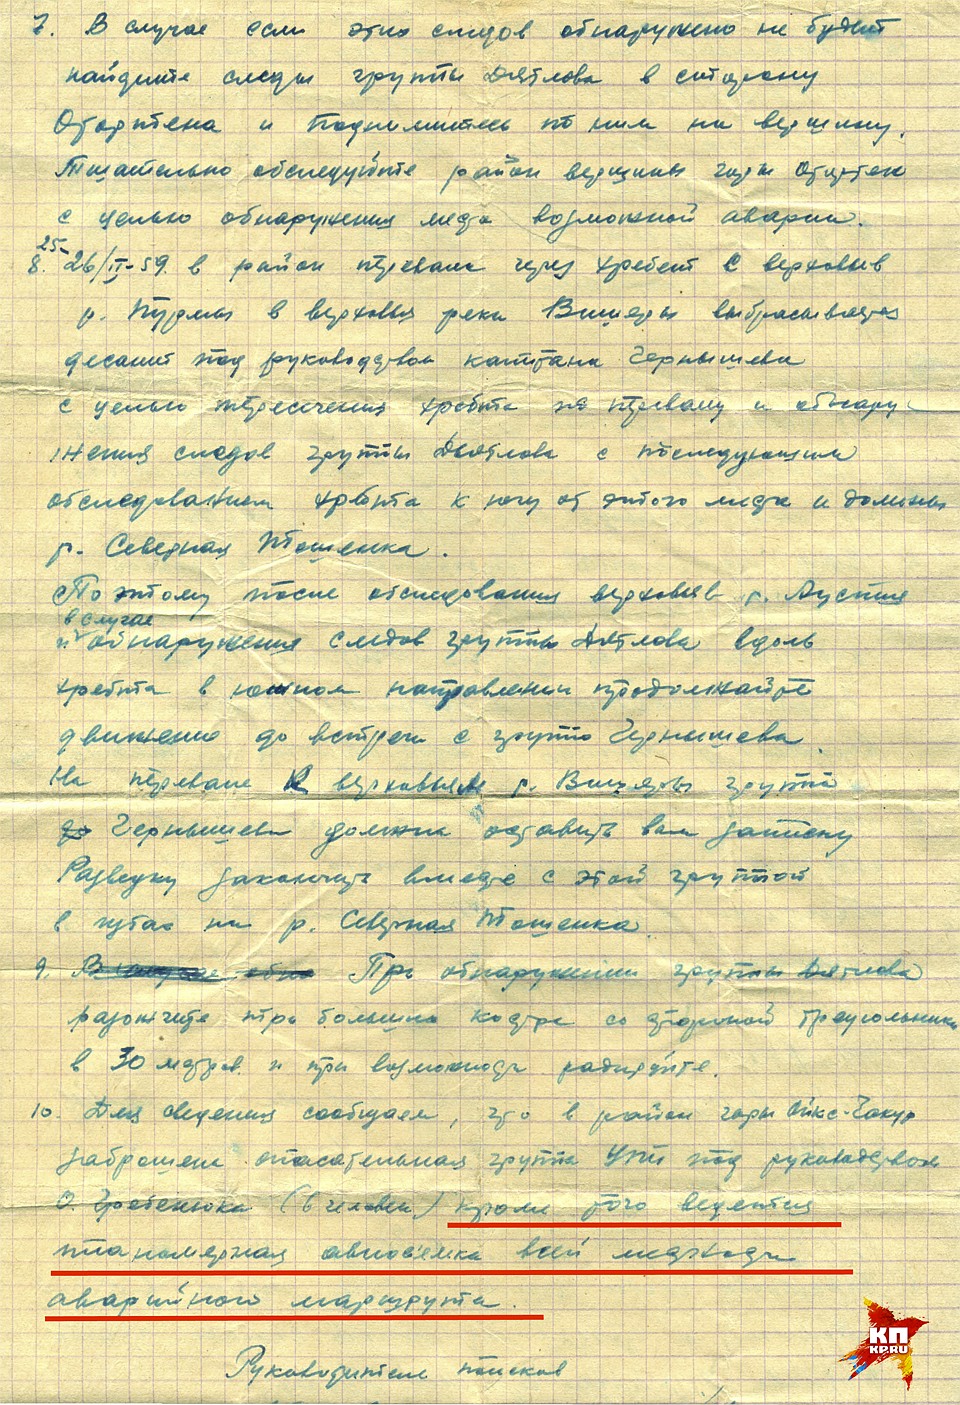 7. В случае если этих следов обнаружено не будет
найдите следы группы Дятлова в сторону
Отортена и поднимитесь по ним на вершину.
Тщательно обследуйте район вершины горы Отортен
с целью обнаружения места возможной аварии.
8. 25-26/II-59 в район перевала через хребет с верховьев
р. Пурмы в верховья реки Вишеры выбрасывается
десант под руководством капитана Чернышева
с целью пересечения хребта по перевалу и обнару-
жения следов группы Дятлова с последующим
обследованием хребта к югу от этого места и долины
р. Северная Тошемка.
Поэтому после обследования верховьев р. Ауспия
и в случае обнаружения следов группы Дятлова вдоль
хребта в южном направлении продолжайте
движение до встречи с группой Чернышева.
На перевале к верховьям р. Вишеры группа
Чернышева должна оставить вам записку
Разведку закончить вместе с этой группой
в чумах на р. Северная Тошемка.
9. При обнаружении группы Дятлова
разожгите три больших костра со стороной треугольника
в 30 метров и при возможности радируйте.
10. Для сведения сообщаем, что в район горы Ойко-Чакур
заброшена спасательная группа УПИ под руководством
О. Гребенюка (6 человек) кроме того ведется
планомерная авиосъемка всей местности
аварийного маршрута.
Руководители поисков
КП
KP.RU